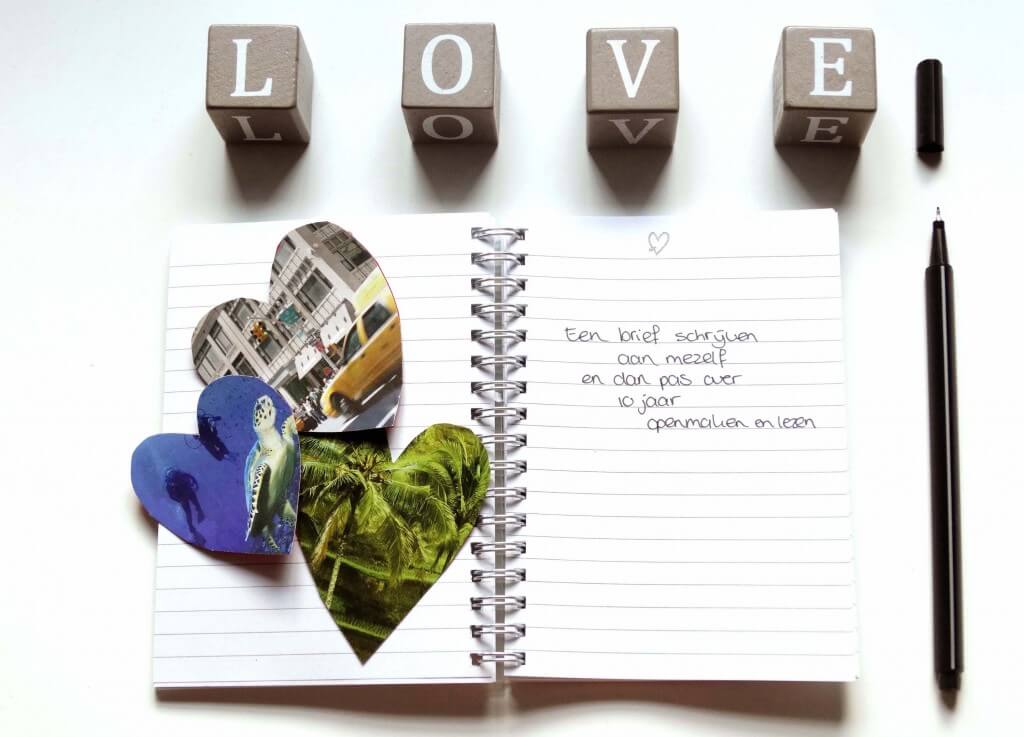 L O V E
L O V E
Een brief schrijven
aan mezelf
en dan pas over
10 jaar
openmaken en lezen